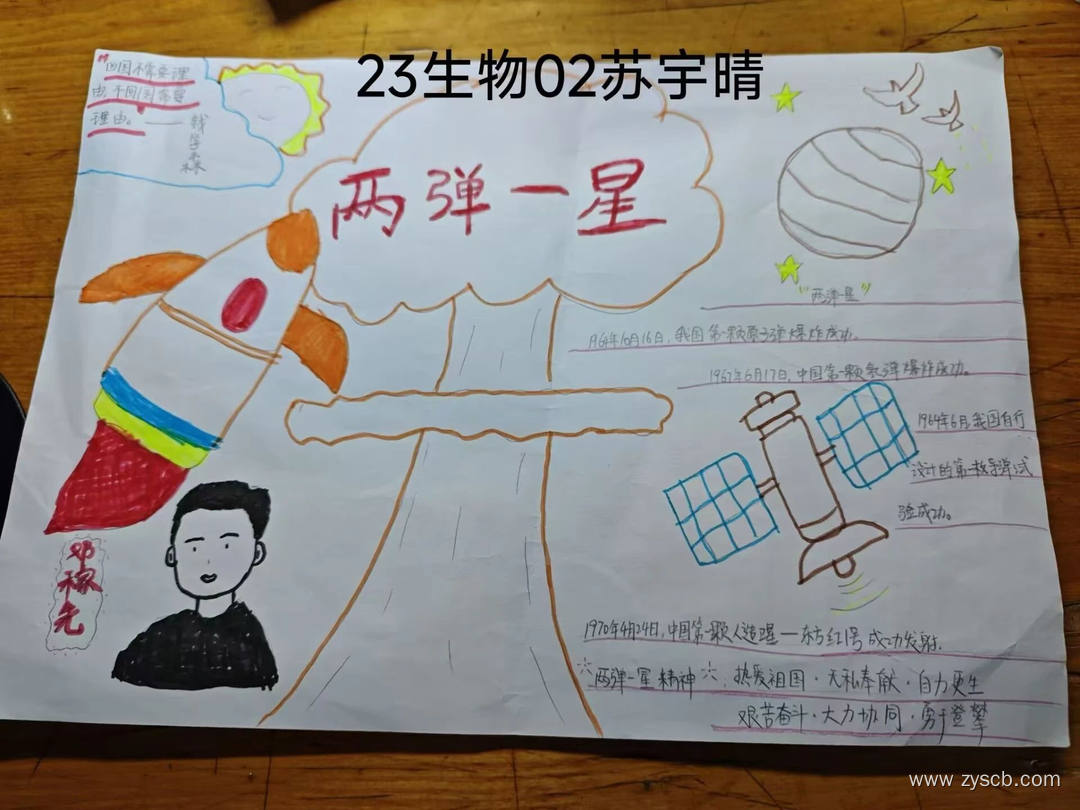 23生物02苏宇晴
回国不需要理
由,不回国才需要
理由。——钱学森
两弹一星
"两弹一星"
1964年10月16日,我国第一颗原子弹爆炸成功。
1967年6月17日,中国第一颗氢弹爆炸成功。
1964年6月,我国自行
设计的第一枚导弹试
验成功。
邓稼先
1970年4月24日,中国第一颗人造卫星一东方红1号成功发射.
两弹一星精神 热爱祖国·无私奉献·自力更生
艰苦奋斗·大力协同·勇于登攀
www.zyscb.com